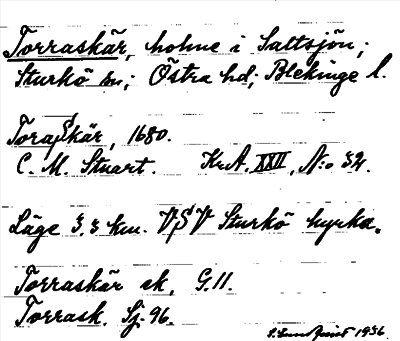 Torraskär, holme i Saltsjön;
Sturkö sn; Östra hd; Blekinge l.
Toraskär, 1680.
C. M. Stuart. Kr.A. XXII, N:o 32.
Läge 3,3 km. VSV Sturkö kyrka.
Torraskär ek, G.11.
Torrask. Sj. 96.
1936